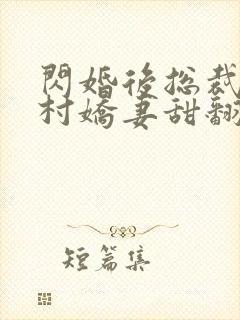 閃婚後總裁
村嬌妻甜翻
短篇集